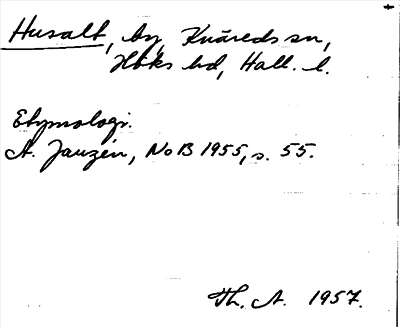 Husalt, by, Knäreds sn,
Höks hd, Hall. l.
Etymologi.
A. Janzén, NoB 1955, s. 55.
Th. A. 1957.